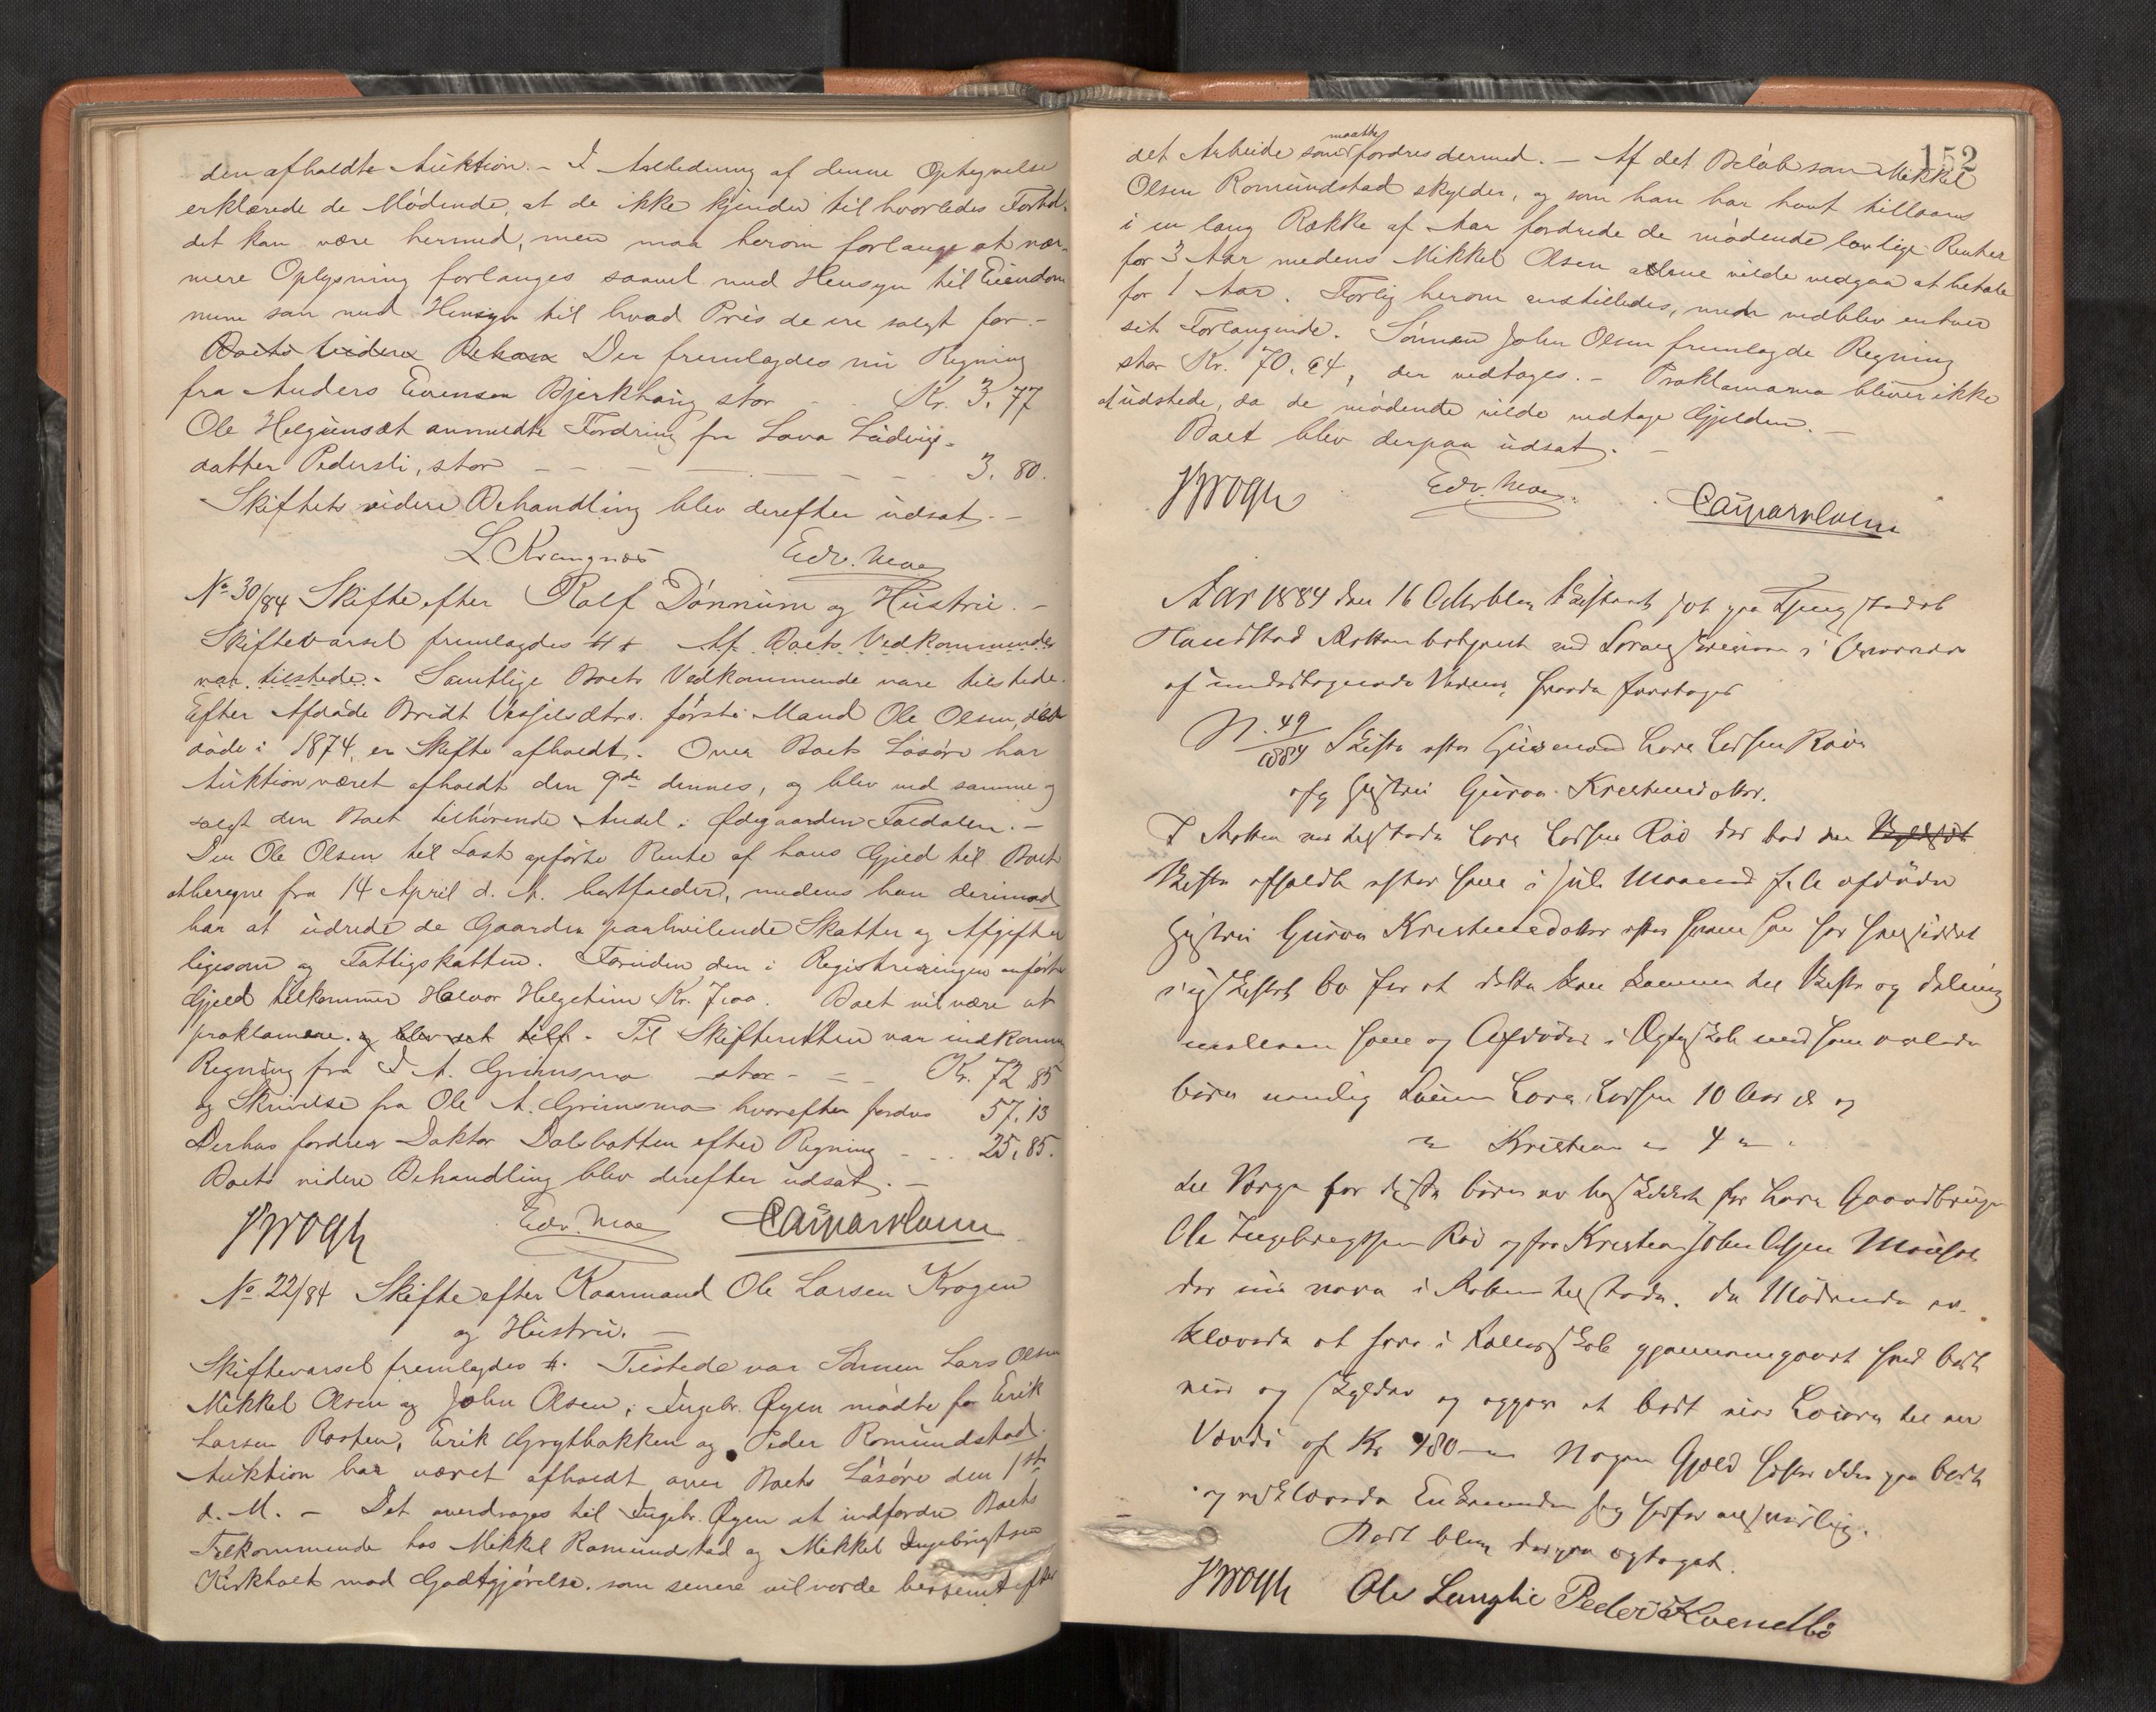 den afholdte Auktion. – I Anledning af denne Optegnelse
erklærede de Mødende, at de ikke kjender til hvorledes Forhol-
det kan være hermed, men maa herom forlange at nær-
mere Oplysning forlanges saavel med Hensyn til Eiendom
mene som med Hensyn til hvad Pris de ere solgt for. –
Boets videre Der fremlagdes nu Regning
fra Anders Evensen Bjerkhaug stor - - Kr. 3.77
Ole Helgeunsæt anmeldte Fordring fra Lava Ludvigs-
datter Pedersli, stor – – – – – 3.80.
Skiftets videre Behandling blev derefter udsat. –
L. Krangnæs Edv. Moe
No 30/84 Skifte efter Rolf Dønnum og Hustru. –
Skiftevarsel fremlagdes Af Boets Vedkommende
var tilstede. – Samtlige Boets Vedkommende vare tilstede.
Efter Afdøde Bridt første Mand Ole Olsen,
døde i 1874, er Skifte afholdt. Over Boets Løsøre har
Auktion været afholdt den 9de dennes, og blev ved samme og
solgt den Boet tilhørende Andel i Ødegaarden Foldalen. –
Den Ole Olsen til Last opførte Rente af hans Gjeld til Boet
at beregne fra 14 April d. A. bortfalder, medens han derimod
har at udrede de Gaarden paahvilende Skatter og Afgifter
ligesom og Fattigskatten. Foruden den i Registreringen anførte
Gjeld tilkommer Halvor Helgetun Kr. 7.00. Boet vil være at
proklamere. og blev sat Til Skifteretten var indkommen
Regning fra I. A. Grimsmo stor - - - Kr. 72.85
og Skrivelse fra Ole A. Grimsmo hvorefter fordres 57.13
Derhos fordrer Doktor Dalsbotten efter Regning - - - 25.85.
Boets videre Behandling blev derefter udsat. –
Krogh Edv. Moe
No 22/84 Skifte efter Kaarmand Ole Larsen Krogen
og Hustru. –
Skiftevarsel fremlagdes. Tilstede var Sønnen Lars Olsen
Mikkel Olsen og John Olsen; Ingebr. Øyen mødte for Erik
Larsen Rosten, Erik Grytbakken og Peder Romundstad.
Auktion har været afholdt over Boets Løsøre den 1ste
d. M. – Det overdroges til Ingebr. Øyen at indfordre Boets
Tilkommende hos Mikkel Romundstad og Mikkel Ingebrigtsen
Kirkholt mod Godtgjørelse, som senere vil vorde bestemt efter
152
det Arbeide som maatte fordres dermed. – Af det Beløb som Mikkel
Olsen Romundstad skylder, og som han har havt tillaans
i en lang Række af Aar fordrede de mødende lovlige Renter
for 3 Aar medens Mikkel Olsen alene vilde vedgaa at betale
for 1 Aar. Forlig herom anstilledes, men vedblev enhver
sit Forlangende. Sønnen John Olsen fremlagde Regning
stor Kr. 70.64, der vedtages. – Proklamama bliver ikke
at udstede, da de mødende vilde vedtage Gjelden. –
Boet blev derpaa udsat. –
Krogh Edv. Moe
Aar 1884 den 16 Oktbr blev Skifteret sat paa Tingstedet
Haudstad Retten betjent ved Sorenskriveren i Overvær
af undertegnede Vidner, hvorda foretoges
N. 49/1884 Skifte efter Husmand Lars Larsen Røv
Hustru Guroa Kristensdatter.
I Retten var tilstede Lars Larsen Røv der bad om
Skifte afholdt efter hans i Juli Maaned afdøde
Hustru Guroa Kristensdatter efter hvem han har hensiddet
i uskiftet Bo for at dette kan komme til Skifte og deling
mellem ham og Afdødes i Ægteskab med ham avlede
børn nemlig Sønnen Lars Larsen 10 Aar og
" Kristen " 4 "
til Værge for disse børn er beskikket for Lars Gaardbruger
Ole Ingebregtsen Røv og for Kristen John Olsen
der nu vare i Retten tilstede. De Mødende er-
klærede at have i Fællesskab gjennemgaaet hvad Boet
eier og skylder og opgav at Boet eier Løsøre til en
Værdi af Kr 480 – Nogen Gjæld hefter ikke paa Boet
og erklærede Enkemanden sig herfor ansvarlig.
Boet blev derpaa optaget.
Krogh Ole Langlie Peder Kvendbø